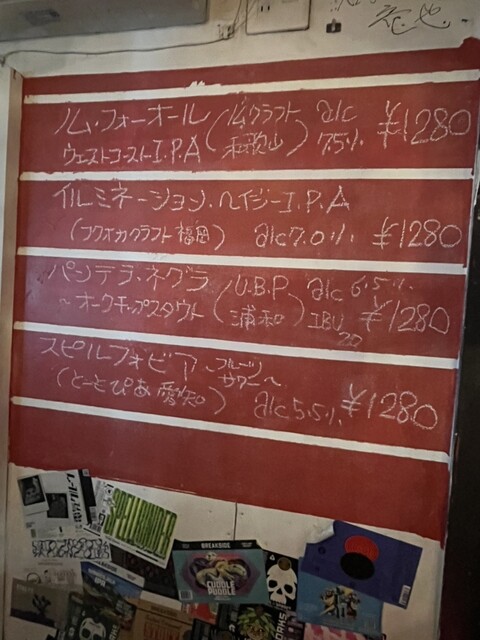 ノム・フォーオール (ノムクラフト alc ¥1280
ウェストコーストI.P.A 和歌山) 7.5%
イルミネーション・ヘイジーI.P.A
(フクオカクラフト福岡) alc7.0% ¥1280
パンテラ・ネグラ (U.B.P alc 6.5%
～オークチップスタウト 浦和) IBU 20 ¥1280
スピルフォビア ～フルーツサワー～
(とーとぴあ愛知) alc5.5% ¥1280
BREAKSIDE
CUDDLE
PUDDLE